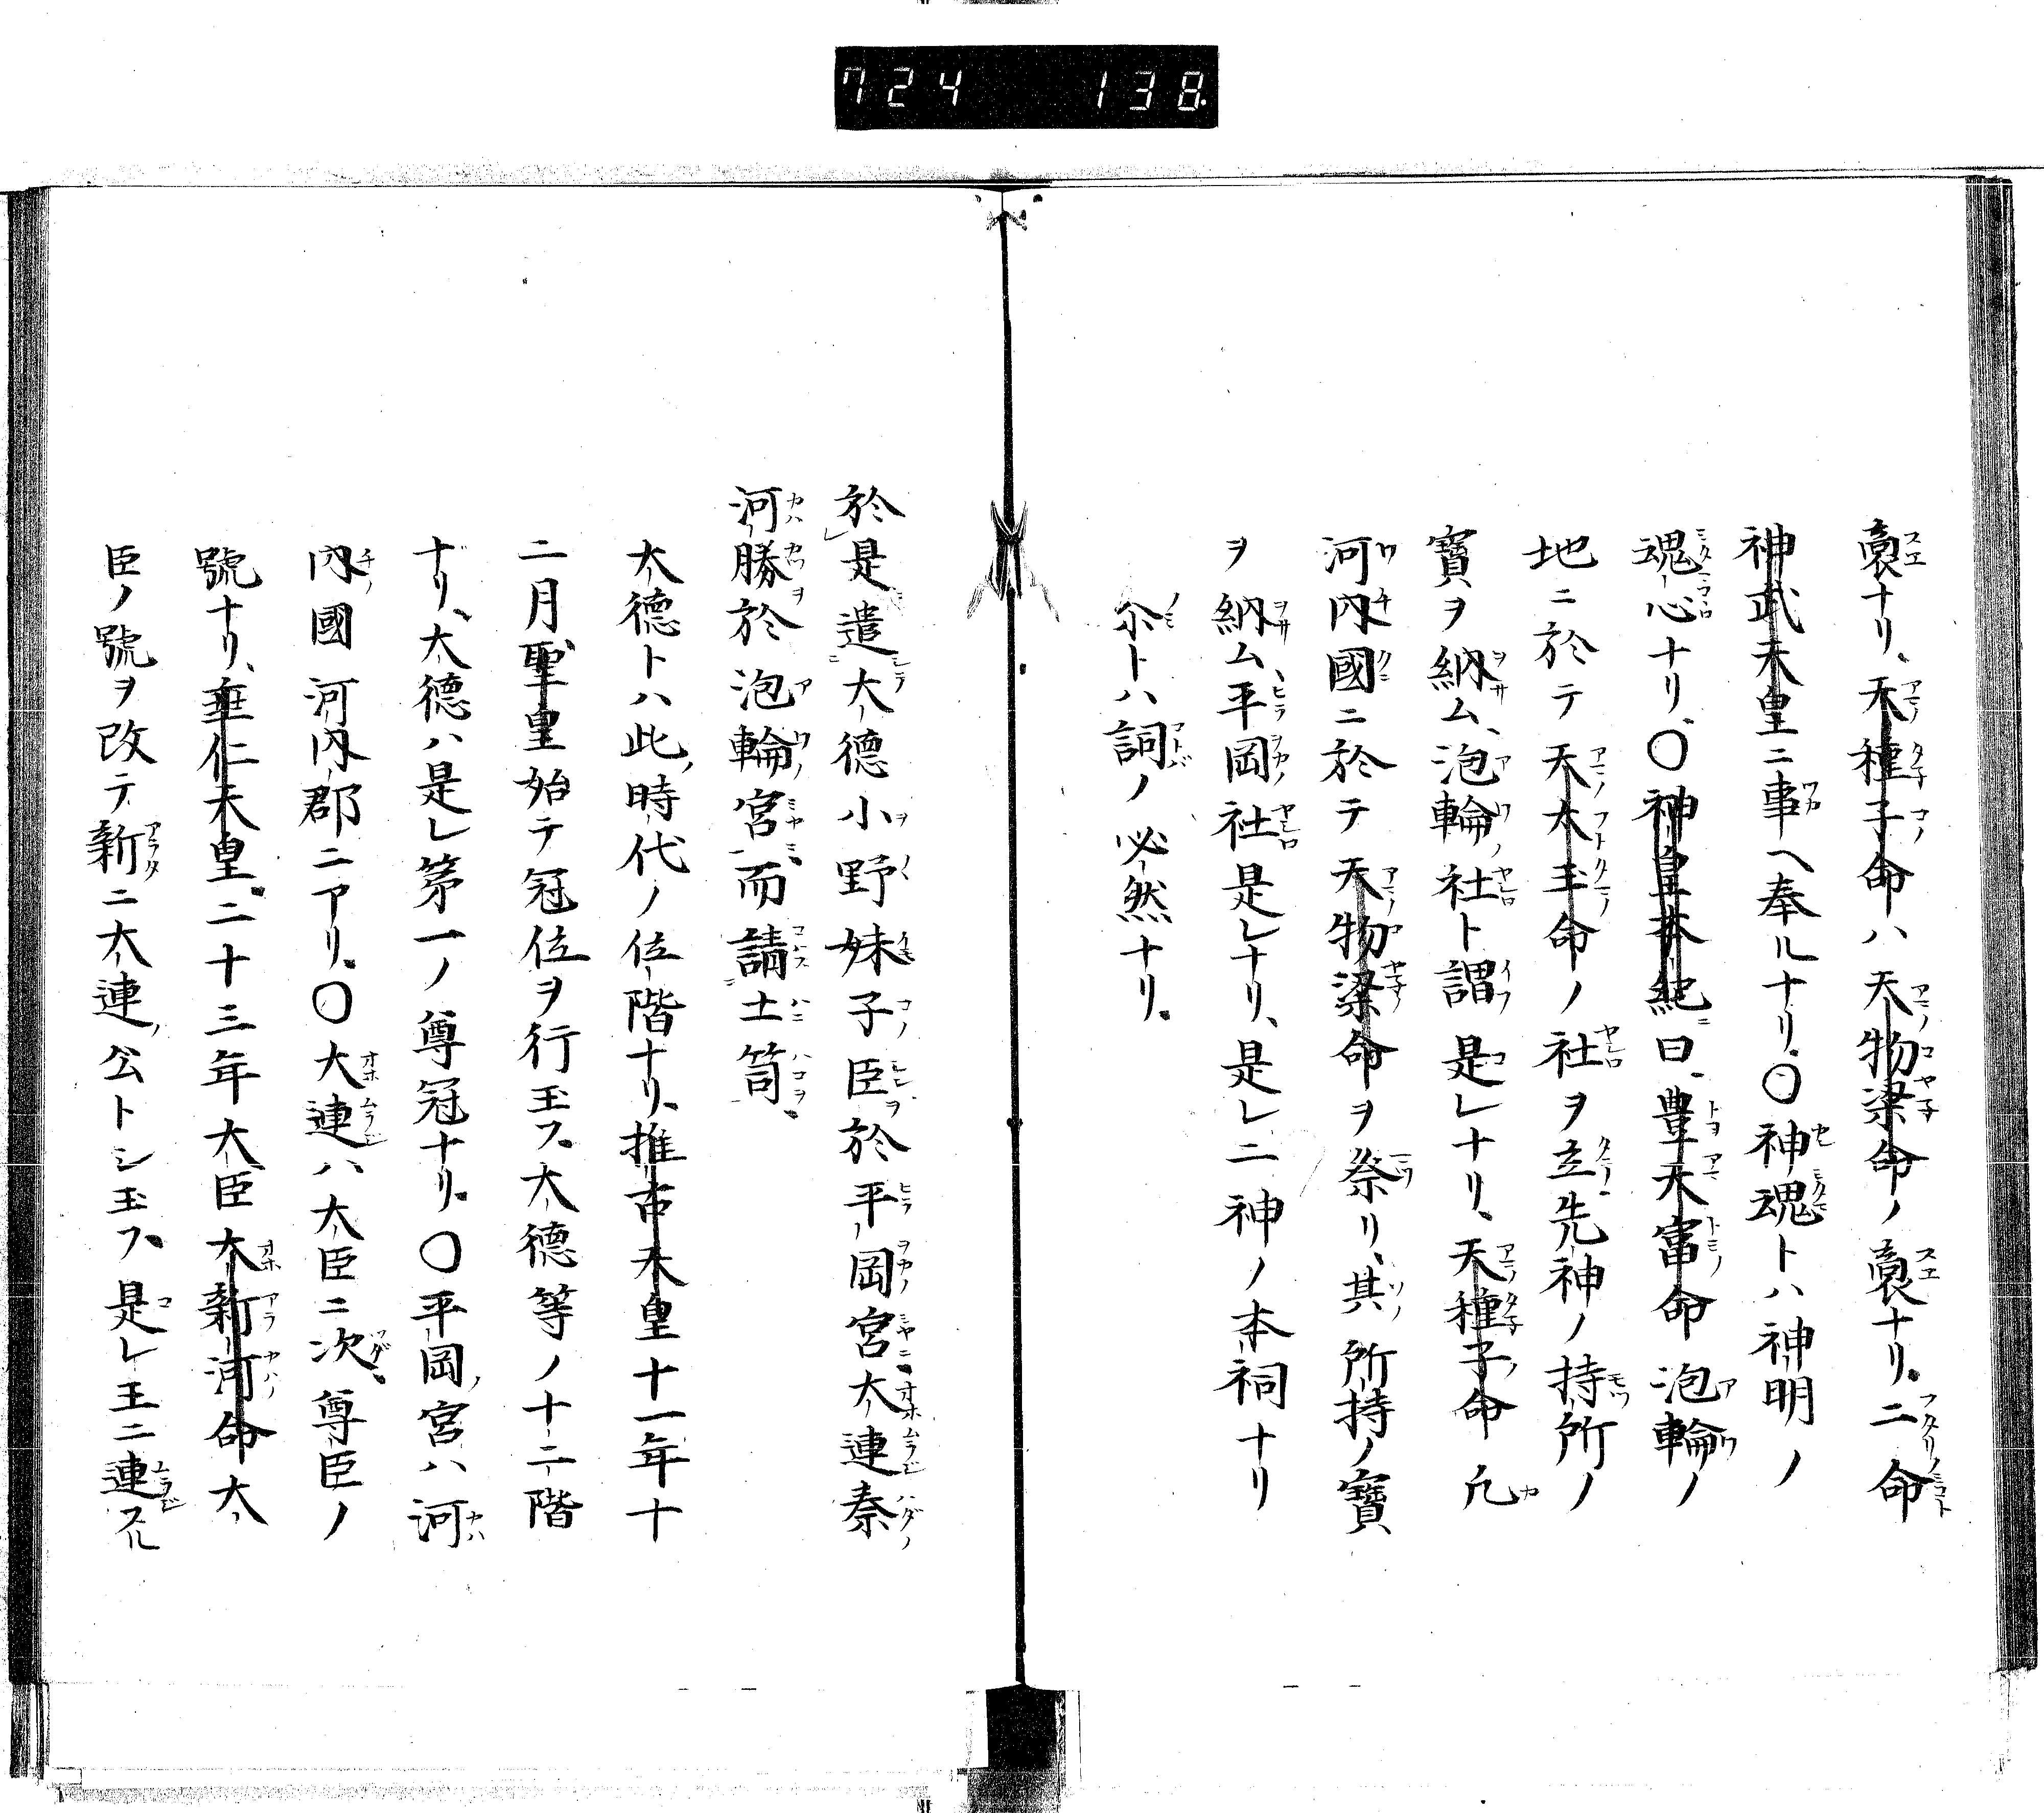 724 138
裔ナリ、天種子命ハ天物梁命ノ裔ナリ。二命
神武天皇ニ事ヘ奉ルナリ。〇神魂トハ神明ノ
魂心ナリ、〇神皇本紀曰、豊天富命泡輪ノ
地ニ於テ天太玉命ノ社ヲ立先神ノ持所ノ
寶ヲ納ム、泡輪社ト謂是レナリ、天種子命凡
河内國ニ於テ天物梁命ヲ祭リ、其所持ノ寶
ヲ納ム、平岡社是レナリ、是レ二神ノ本祠ナリ
尒トハ詞ノ必然ナリ。
於是遣大德小野妹子臣於平岡宮大連秦
河勝於泡輪宮而請土笥
大德トハ此時代ノ位階ナリ、推古天皇十一年十
二月聖皇始テ冠位ヲ行玉フ、大德等ノ十二階
ナリ、大德ハ是レ第一ノ尊冠ナリ。〇平岡宮ハ河
内國河内郡ニアリ。〇大連ハ大臣ニ次、尊臣ノ
號ナリ、垂仁天皇二十三年大臣大新河命大
臣ノ號ヲ改テ新ニ大連公トシ玉フ、是レ王ニ連スル